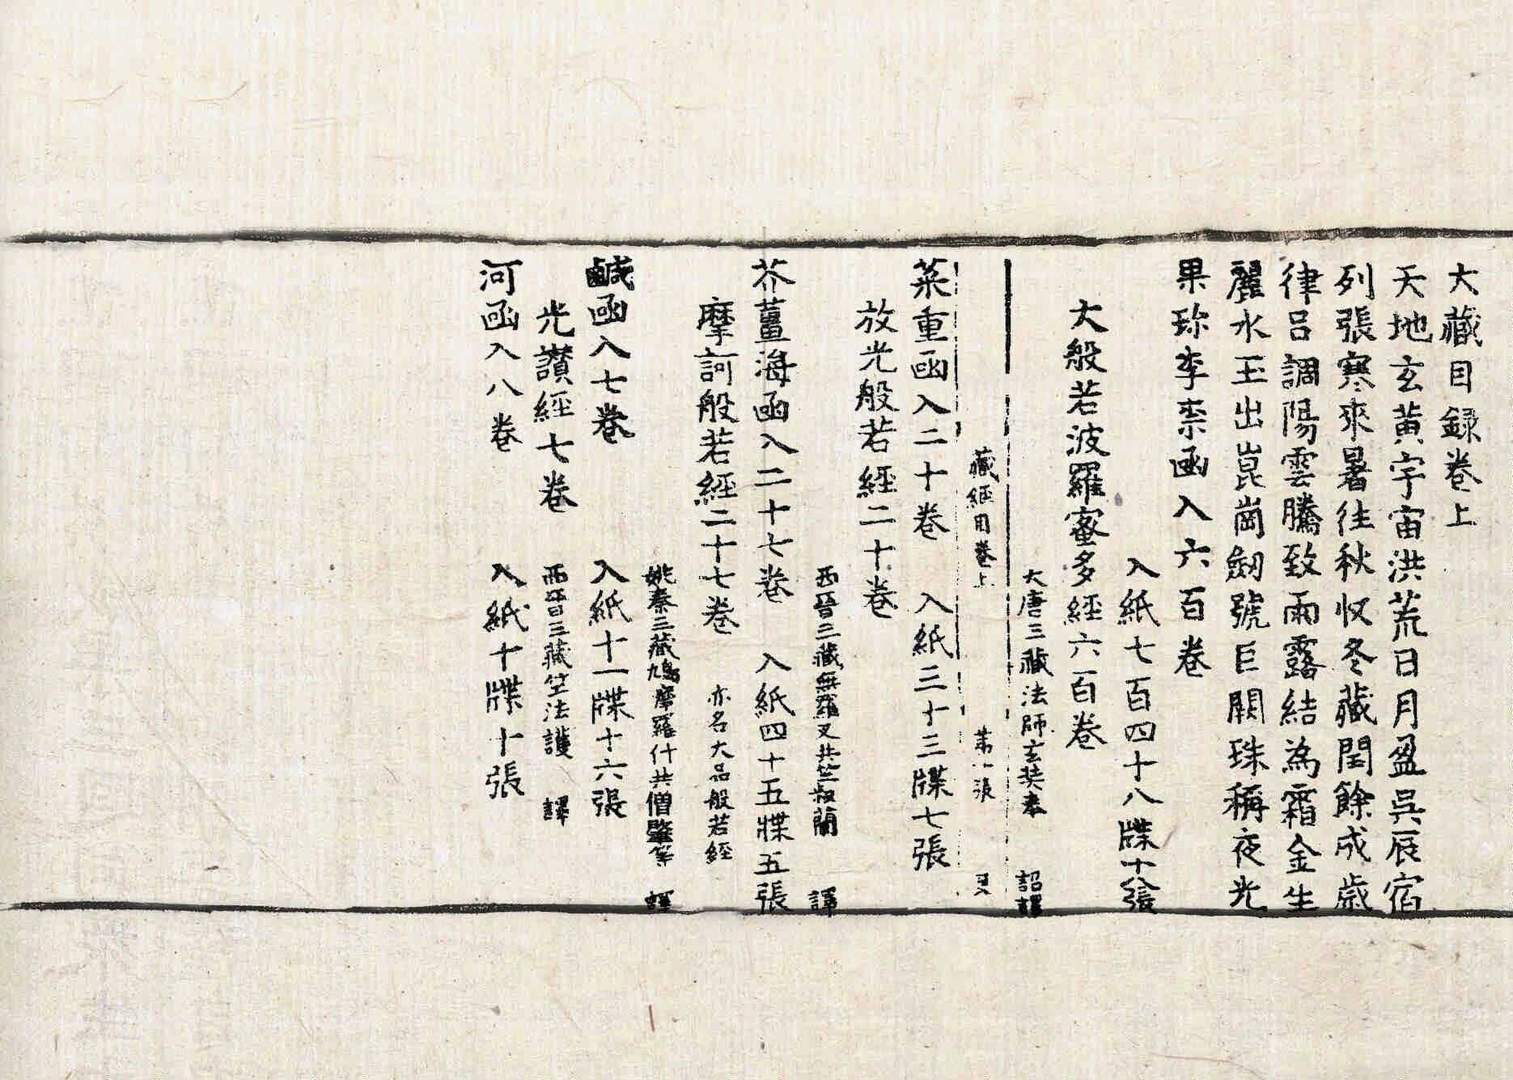 大藏目録卷上
天地玄黄宇宙洪荒日月盈昃辰宿
列張寒來暑往秋収冬藏閏餘成歲
律呂調陽雲騰致雨露結為霜金生
麗水玉出崑崗劒號巨闕珠稱夜光
果珎李柰函入六百卷
入紙七百四十八牒十八張
大般若波羅蜜多經六百卷
大唐三藏法師玄奘奉 詔譯
藏經目卷上 第一張
菜重函入二十卷 入紙三十三牒七張
放光般若經二十卷
西晉三藏無羅叉共竺叔蘭 譯
芥薑海函入二十七卷 入紙四十五牒五張
摩訶般若經二十七卷 亦名大品般若經
姚秦三藏鳩摩羅什共僧肇等 譯
鹹函入七卷 入紙十一牒十六張
光讃經七卷 西晉三藏竺法護 譯
河函入八卷 入紙十牒十張